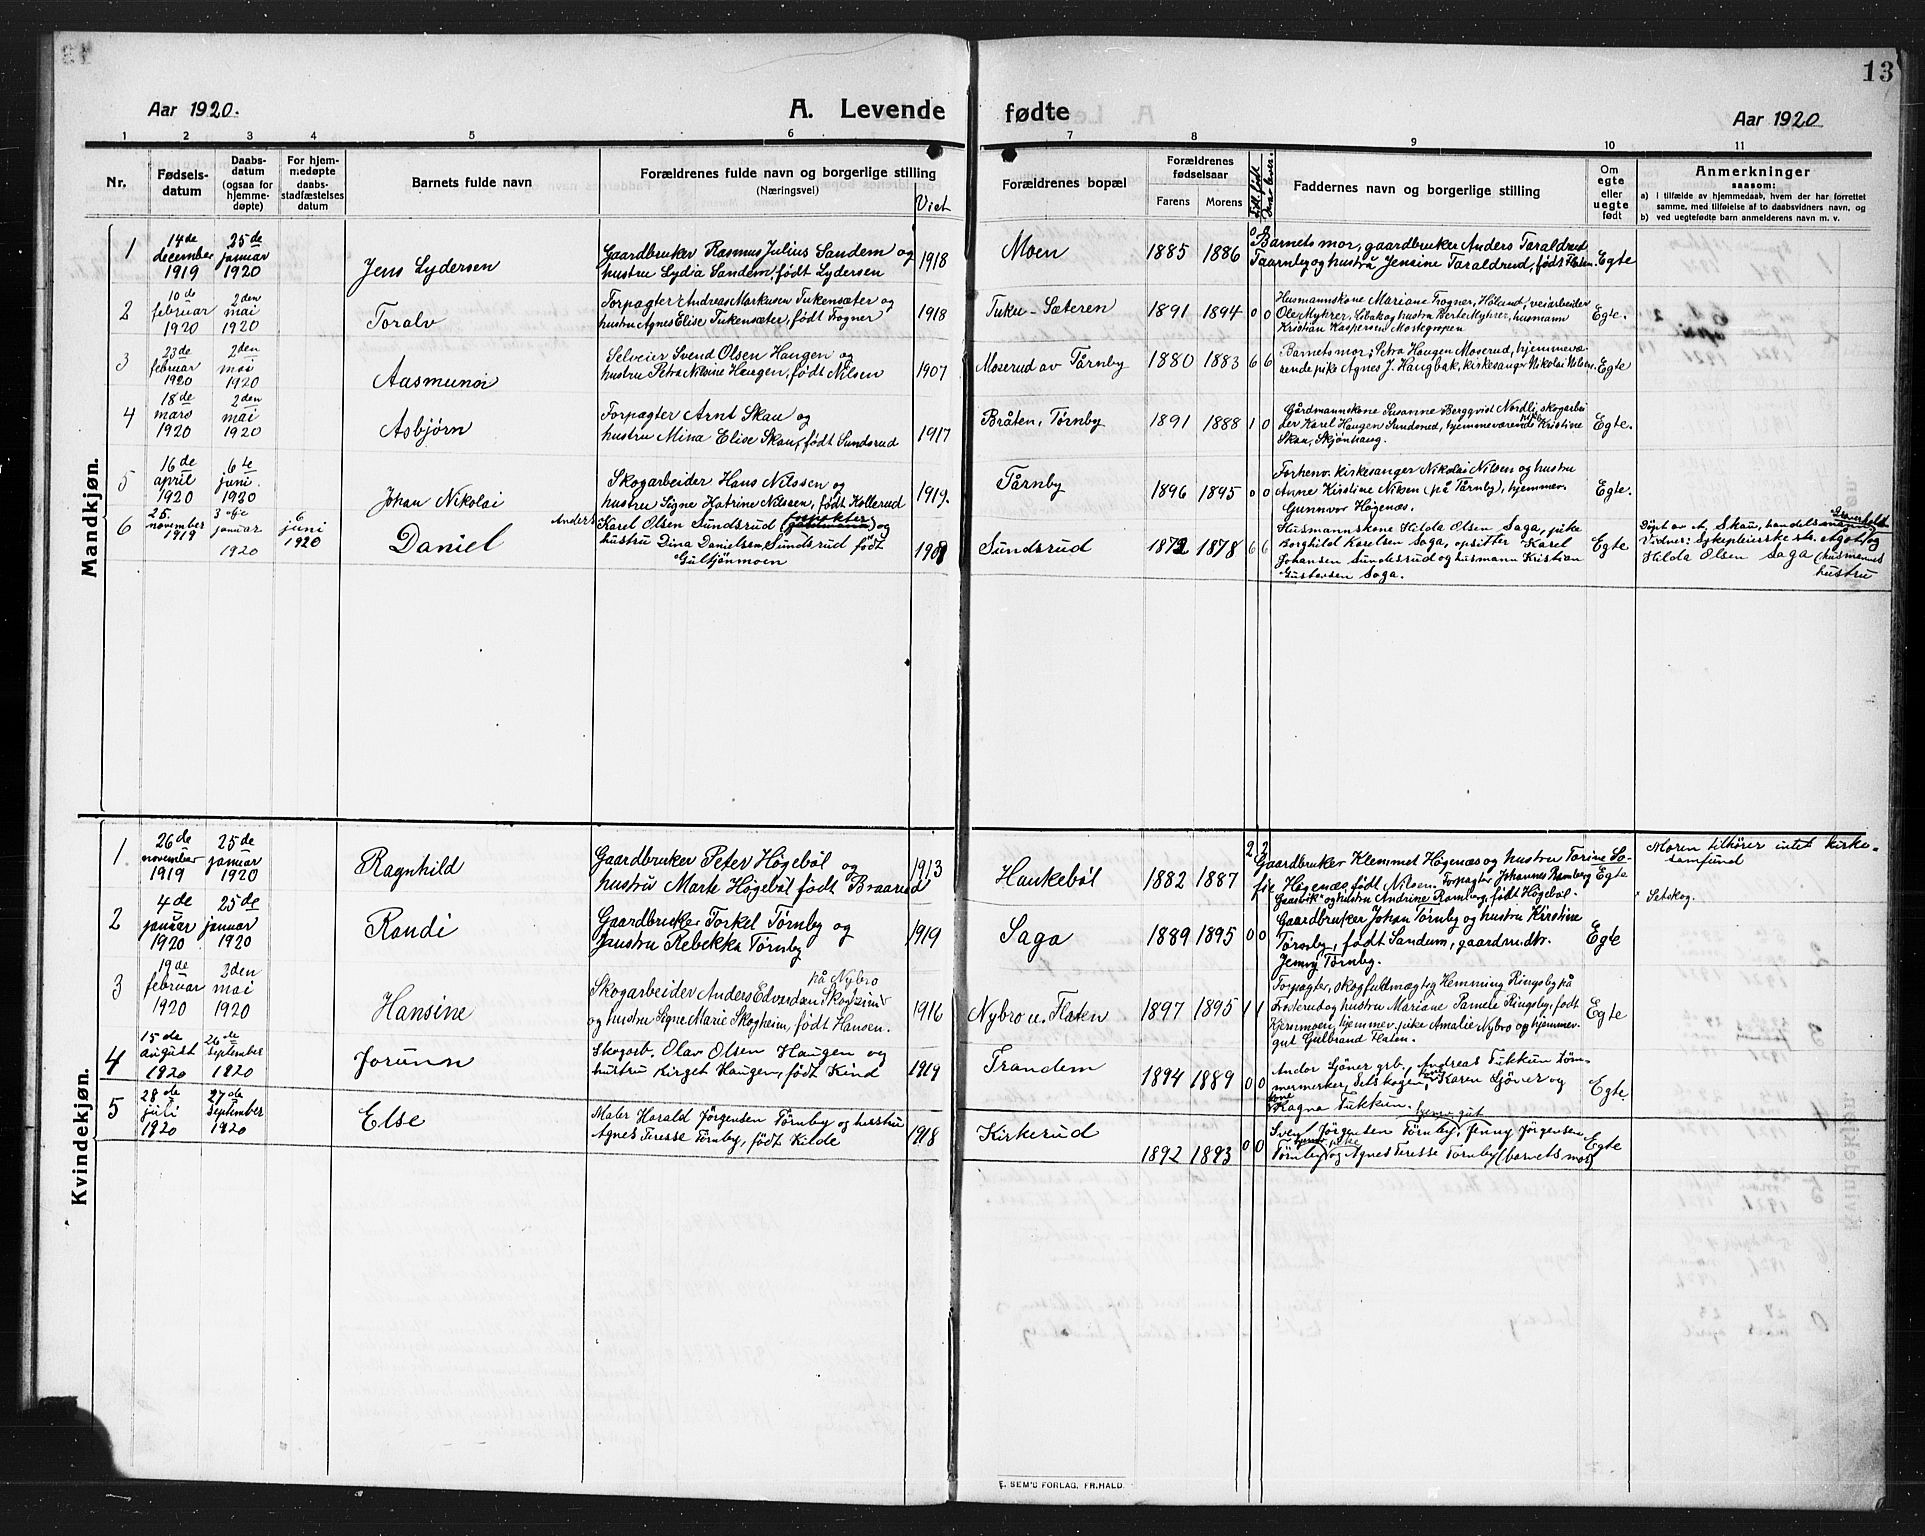 13
Aar 1920.
A. Levende
fødte
Aar 1920
1 2 3 4 5 6 7 8 9 10 11
Nr.
Fødsels-
datum
Daabs-
datum
(ogsaa for
hjemme-
døpte)
For hjem-
medøpte
daabs-
stadfæstelses
datum
Barnets fulde navn
Forældrenes fulde navn og borgerlige stilling
(Næringsvei)
Viet
Forældrenes bopæl
Forældrenes
fødselsaar
Farens Morens
Faddernes navn og borgerlige stilling
Om
egte
eller
uegte
født
Anmerkninger
saasom:
a) i tilfælde av hjemmedaab, hvem der har forrettet
samme, med tilføielse af to daabsvidners navn, og
b) ved uegtefødte barn anmelderens navn m. v.
Mandkjøn.
1
14de
december
1919
25de
januar
1920
Jens Lydersen
Gaardbruker Rasmus Julius Sandem og
hustru Lydia Sandem, født Lydersen
1918
Moen
1885 1886 0 0
Barnets mor, gaardbruker Anders Taraldrud
Taarnby og hustru Jensine Taraldrud, født Flaten.
Egte
2
10de
februar
1920
2den
mai
1920
Toralv
Forpagter Andreas Markusen Tukensæter og
hustru Agnes Elise Tukensæter, født Fogner
1918
Tuku-Sæteren
1891 1894 0 0
Husmannskone Mariane Fogner, Høland, veiarbeider
Ole Myhrer, Libak og hustru Berte Myhrer, husmann
Kristian Kaspersen Mosegropen
Egte.
3
23de
februar
1920
2den
mai
1920
Aasmund
Selveier Svend Olsen Haugen og
hustru Petra Nilsine Haugen, født Nilsen
1907
Moserud av Tårnby
1880 1883 6 6
Barnets mor: Petra Haugen Moserud, hjemmevæ-
rende pike Agnes J. Haugbak, kirkesanger Nikolai Nilsen
Egte
4
18de
mars
1920
2den
mai
1920
Asbjørn
Forpagter Arnt Skau og
hustru Mina Elise Skau, født Sundsrud
1917
Bråten, Tørnby
1891 1888 1 0
Gårdmannskone Susanne Bergqvist Nordli, skogarbei
der Karel Haugen Sundsrud, hjemmeværende Kristine
Skau, Skjønhaug.
Egte.
5
16de
april
1920
6te
juni
1920
Johan Nikolai
Skogarbeider Hans Nilssen og
hustru Signe Katrine Nilsen, født Kollerud
1919.
Tårnby
1896 1895 0 0
Forhenv. kirkesanger Nikolai Nilsen og hustru
Anne Kirstine Nilsen (på Tårnby), hjemmev.
Gunnvor Høgenæs.
Egte.
6
25.
november
1919
3dje
januar
1920
6
juni
1920
Anders
Daniel
Karel Olsen Sundsrud og
hustru Dina Danielsen Sundsrud født
Gultjønmoen
1901
Sundsrud
1872 1878 6 6
Husmannskone Hilda Olsen Saga, pike
Borghild Karelsen Saga, opsitter Karel
Johansen Sundsrud og husmann Kristian
Gustavsen Saga.
Egte
Døpt av A. Skau, handelsmann
Vidner: Sykepleierske og
Hilda Olsen Saga (husmannes
hustru
Kvindekjøn.
1
26de
november
1919
25de
januar
1920
Ragnhild
Gaardbruker Peter Høgebøl og
hustru Marte Høgebøl født Braarud
1913
Haukebøl
1882 1887 2 2
Gaardbruker Klemmet Høgenæs og hustru Torine So-
fie Høgenæs, født Nilsen. Forpagter Johannes Ramberg
Gaasvik og hustru Andrine Ramberg, født Høgebøl.
Egte
Moren tilhører intet kirke-
samfund
Setskog.
2
4de
januar
1920
25de
januar
1920
Randi
Gaardbruker Torkel Tørnby og
hustru Rebekka Tørnby
1919
Saga
1889 1895 0 0
Gaardbruker Johan Tørnby og hustru Kirstine
Tørnby, født Sandem, gaardm.dtr.
Jenny Tørnby.
Egte
3
19de
februar
1920
2den
mai
1920
Hansine
på Nybro
Skogarbeider Anders Edvardsen Skogheim
og hustru Signe Marie Skogheim, født Hansen.
1916
Nybro u. Flaten
1897 1895 1 1
Forpagter, skogfuldmægtig Hemming Ringsby på
Fosterud og hustru Mariane Pamele Ringsby, født
Kjernmoen, hjemmev. pike Amalie Nybro og hjemmev.
gut Gulbrand Flaten.
Egte
4
15de
august
1920
26de
september
1920
Jorunn
Skogarb. Olav Olsen Haugen og
hustru Birget Haugen, født Kind
1919
Trandem
1894 1889 0 0
Andor Sjøner grb., Andreas Tukkun tøm-
mermerker, Setskogen, Karen Sjøner og
Ragna Tukkun.
Egte.
5
28de
juli
1920
27de
september
1920
Else
Maler Harald Jørgensen Tørnby og hustru
Agnes Teresse Tørnby, født Kilde
1918
Kirkerud
1892 1893 0 0
Svend Jørgensen Tørnby, hjemv. gut, Jenny Jørgensen
Tørnby og Agnes Teresse Tørnby (barnets mor)
Egte
E. SEM'S FORLAG, FR.HALD